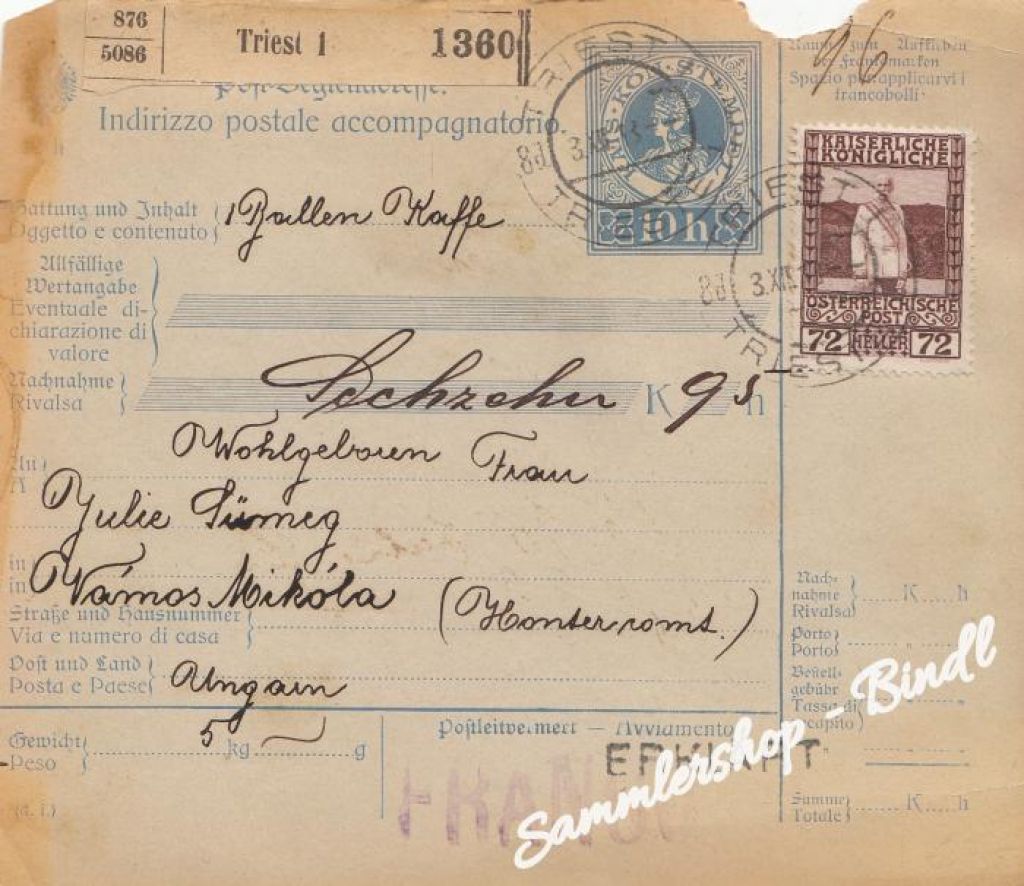 876
5086
Triest 1
1360
Indirizzo postale accompagnatorio.
KAIS. KÖN. STEMPEL
10 h
TRIEST
3.XII.13
8d
TRIEST
96
Raum zum Aufkleben
der Frankomarken
Spazio per applicarvi i
francobolli
KAISERLICHE
KÖNIGLICHE
ÖSTERREICHISCHE
POST
72 HELLER 72
TRIEST
8d 3.XII
TRIEST
Gattung und Inhalt
Oggetto e contenuto
1 Ballen Kaffe
Allfällige
Wertangabe
Eventuale di-
chiarazione di
valore
Nachnahme
Rivalsa
Sechzehn K 95 h
An
A
Wohlgeboren Frau
Julie Sümeg
in
in
Námos Mikóla (Honter comt.)
Straße und Hausnummer
Via e numero di casa
Post und Land
Posta e Paese
Ungarn
Gewicht
Peso
5 kg g
(d. i.)
Postleitvermerk — Avviamento
FRANCO
Nach-
nahme
Rivalsa
K h
Porto
Porto
Bestell-
gebühr
Tassa di
recapito
Summe
Totale
K h
Sammlershop-Bindl